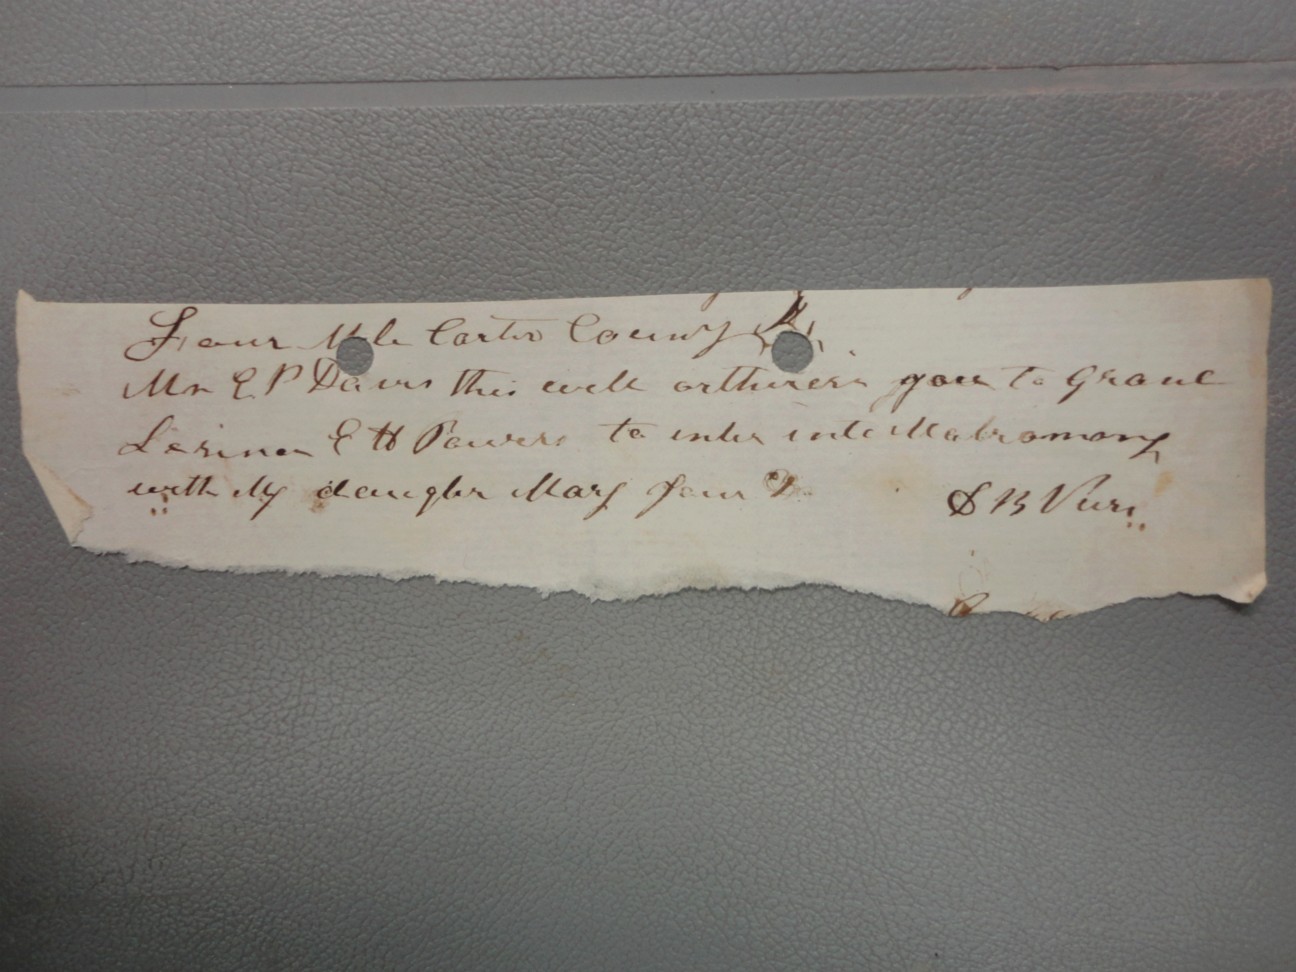 Four Mile Carter County K
Mr E P Davis this will orthurise you to Grant
Lesince E H Powers to enter into Matromony
with My daughter Mary Jane
S B Vur